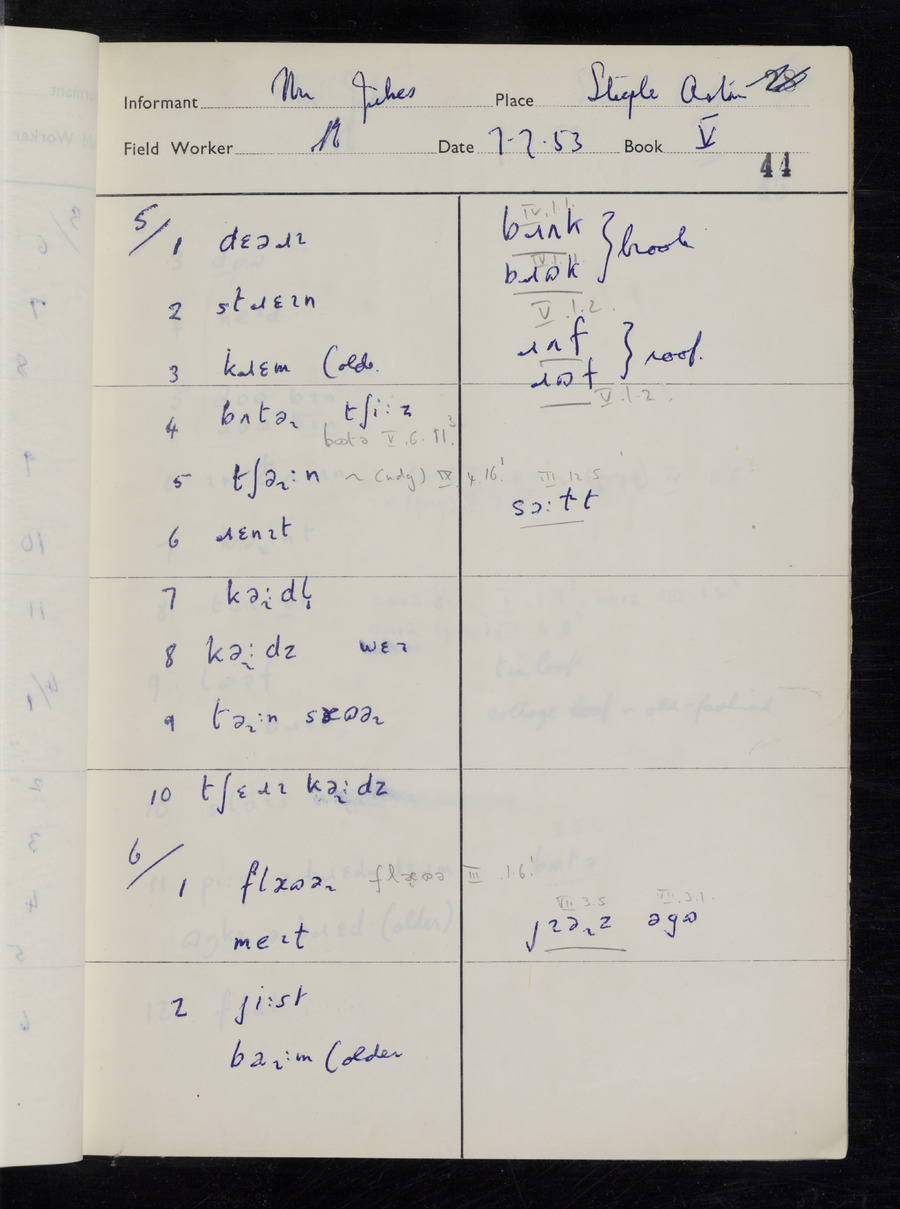 Informant Mr Jukes Place Steeple Aston
Field Worker Date 7-7-53 Book V
44
5/1 dɛəɹɪ
2 stɹɛɪn
3 kɹɛm (older
4 bʌtəɻ tʃiːz
butə V.6.11³
5 tʃəɻːn ~ (ndg) IX 4.16¹
6 ɹɛnɪt
7 kəɻːdl̩
8 kəɻːdz wɛɪ
9 təɻːn sæʊəɻ
10 tʃɛɪɹɪ kəɻːdz
6/1 flæʊəɻ flæʊə III 1.6¹
meɪt
2 jiːst
baɻːm (older
IV.1.1.
bɹʌk } brook
IV.1.1.
bɹʊk
V.1.2.
ɹʌf } roof.
ɹʊf
V.1.2.
III 12.5¹
sɔːtɪt
VII 3.5 VII.3.1.
jɪəɻz əgɷ